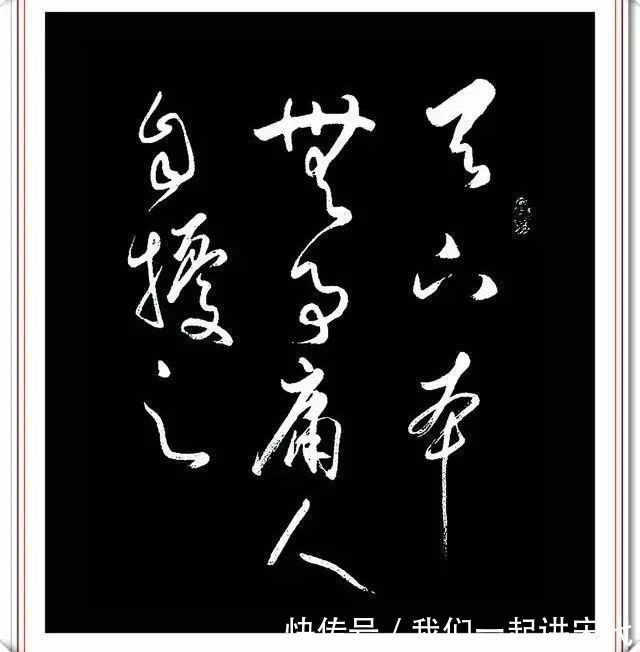 天下本
無事庸人
自擾之
快传号/我们一起讲宋代